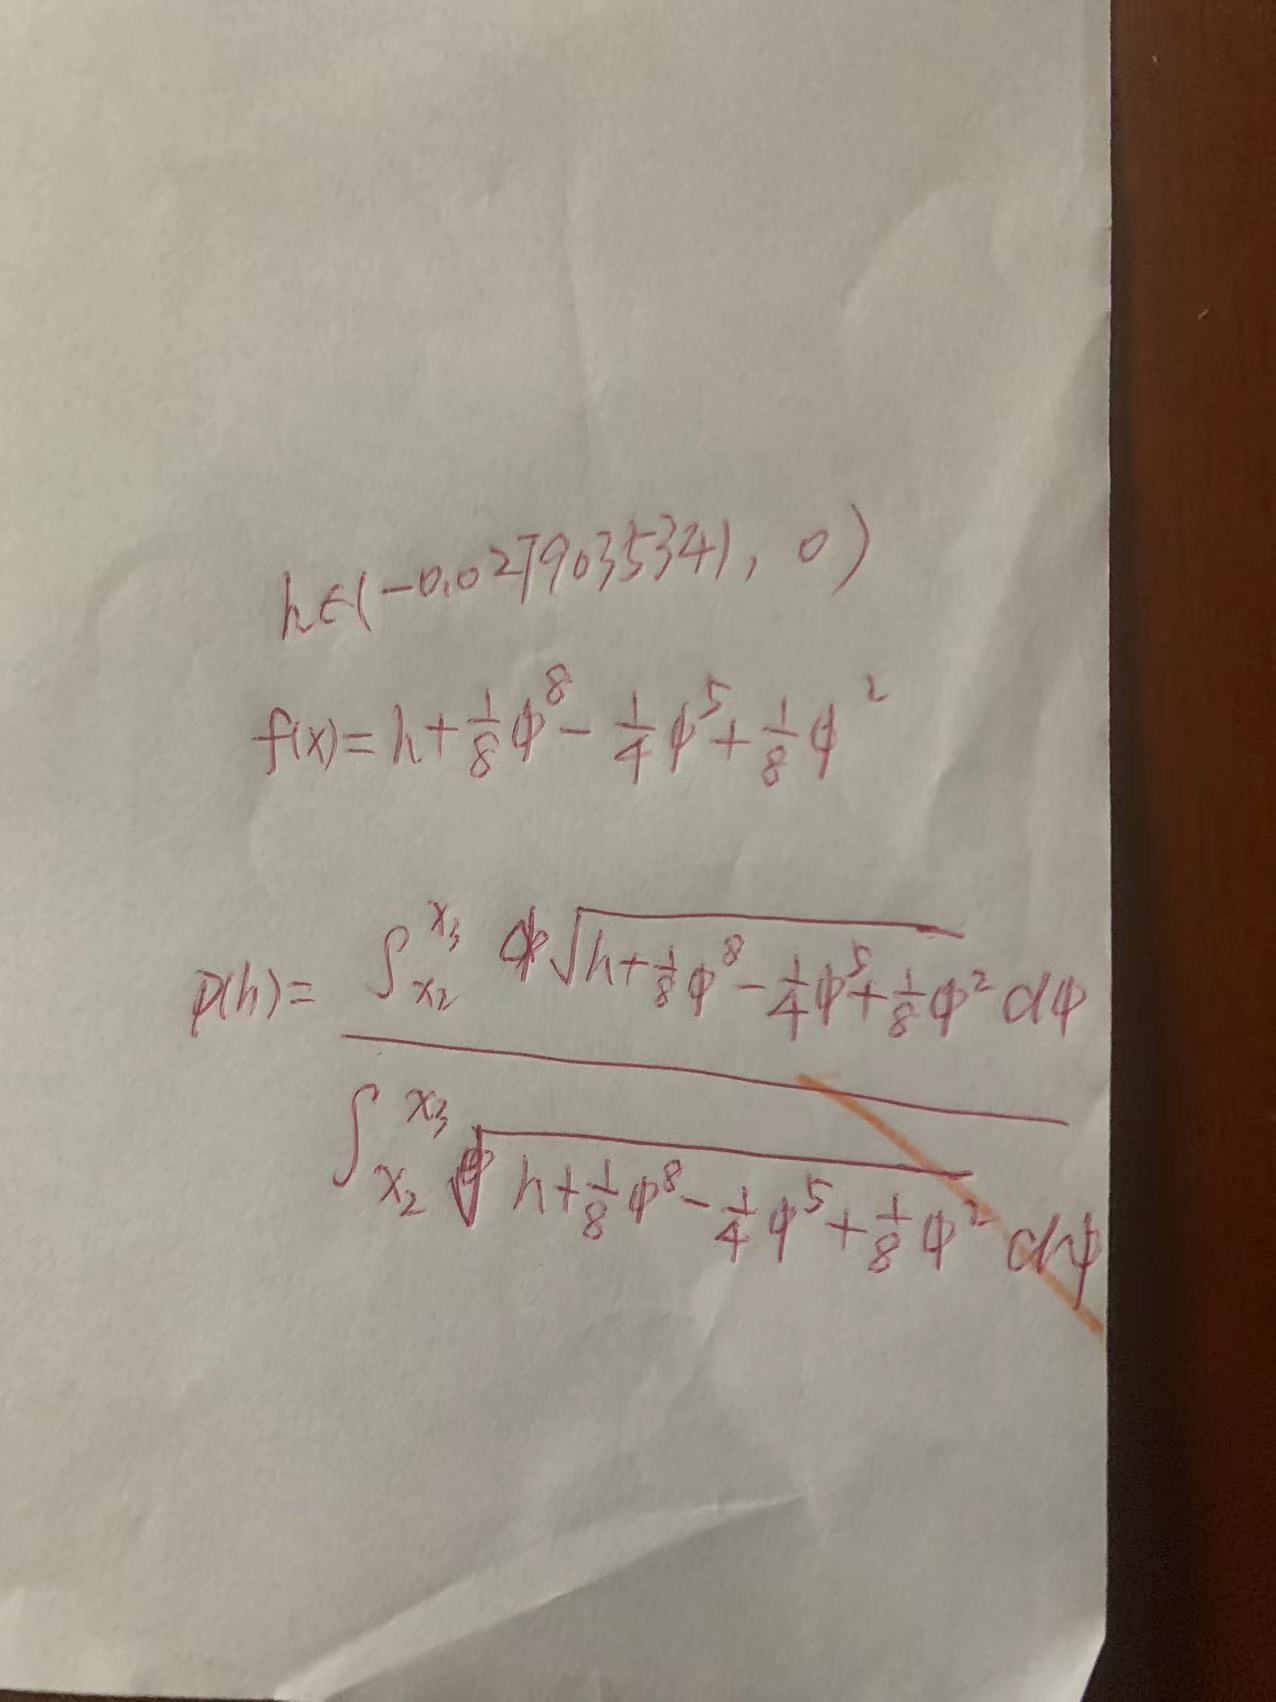 h∈(-0.0279035341, 0)
f(x)=h+1/8 φ^8 - 1/4 φ^5 + 1/8 φ^2
p(h)= ∫_{x2}^{x3} φ√(h+1/8 φ^8 - 1/4 φ^5 + 1/8 φ^2) dφ
∫_{x2}^{x3} √(h+1/8 φ^8 - 1/4 φ^5 + 1/8 φ^2) dφ